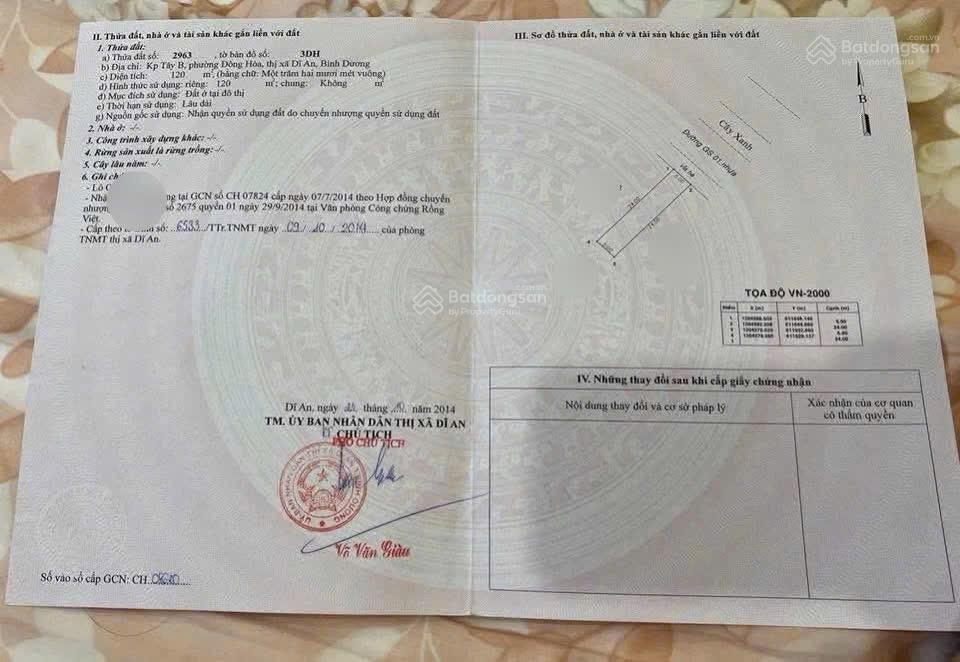 II. Thửa đất, nhà ở và tài sản khác gắn liền với đất
1. Thửa đất:
a) Thửa đất số: 2963, tờ bản đồ số: 3DH
b) Địa chỉ: Kp Tây B, phường Đông Hòa, thị xã Dĩ An, Bình Dương
c) Diện tích: 120 m², (bằng chữ: Một trăm hai mươi mét vuông)
d) Hình thức sử dụng: riêng: 120 m²; chung: Không m²
đ) Mục đích sử dụng: Đất ở tại đô thị
e) Thời hạn sử dụng: Lâu dài
g) Nguồn gốc sử dụng: Nhận quyền sử dụng đất do chuyển nhượng quyền sử dụng đất
2. Nhà ở: -/-
3. Công trình xây dựng khác: -/-
4. Rừng sản xuất là rừng trồng: -/-
5. Cây lâu năm: -/-
6. Ghi
- Lô
- Nhậ ng tại GCN số CH 07824 cấp ngày 07/7/2014 theo Hợp đồng chuyển
nhượn số 2675 quyển 01 ngày 29/9/2014 tại Văn phòng Công chứng Rồng
Việt.
- Cấp theo số: 6533/TTr.TNMT ngày 09/10/2014 của phòng
TNMT thị xã Dĩ An.
Dĩ An, ngày tháng năm 2014
TM. ỦY BAN NHÂN DÂN THỊ XÃ DĨ AN
CHỦ TỊCH
PHÓ CHỦ TỊCH
Võ Văn Giàu
Số vào sổ cấp GCN: CH
III. Sơ đồ thửa đất, nhà ở và tài sản khác gắn liền với đất
Batdongsan.com.vn
by PropertyGuru
B
Cây Xanh
Đường GS 01, nhựa
Vỉa hè
5.00
1
24.00
24.00
5.00
TỌA ĐỘ VN-2000
Điểm X (m) Y (m) Cạnh (m)
1
2
3
4
1
5.00
24.00
5.00
24.00
Batdongsan
by PropertyGuru
IV. Những thay đổi sau khi cấp giấy chứng nhận
Nội dung thay đổi và cơ sở pháp lý
Xác nhận của cơ quan
có thẩm quyền